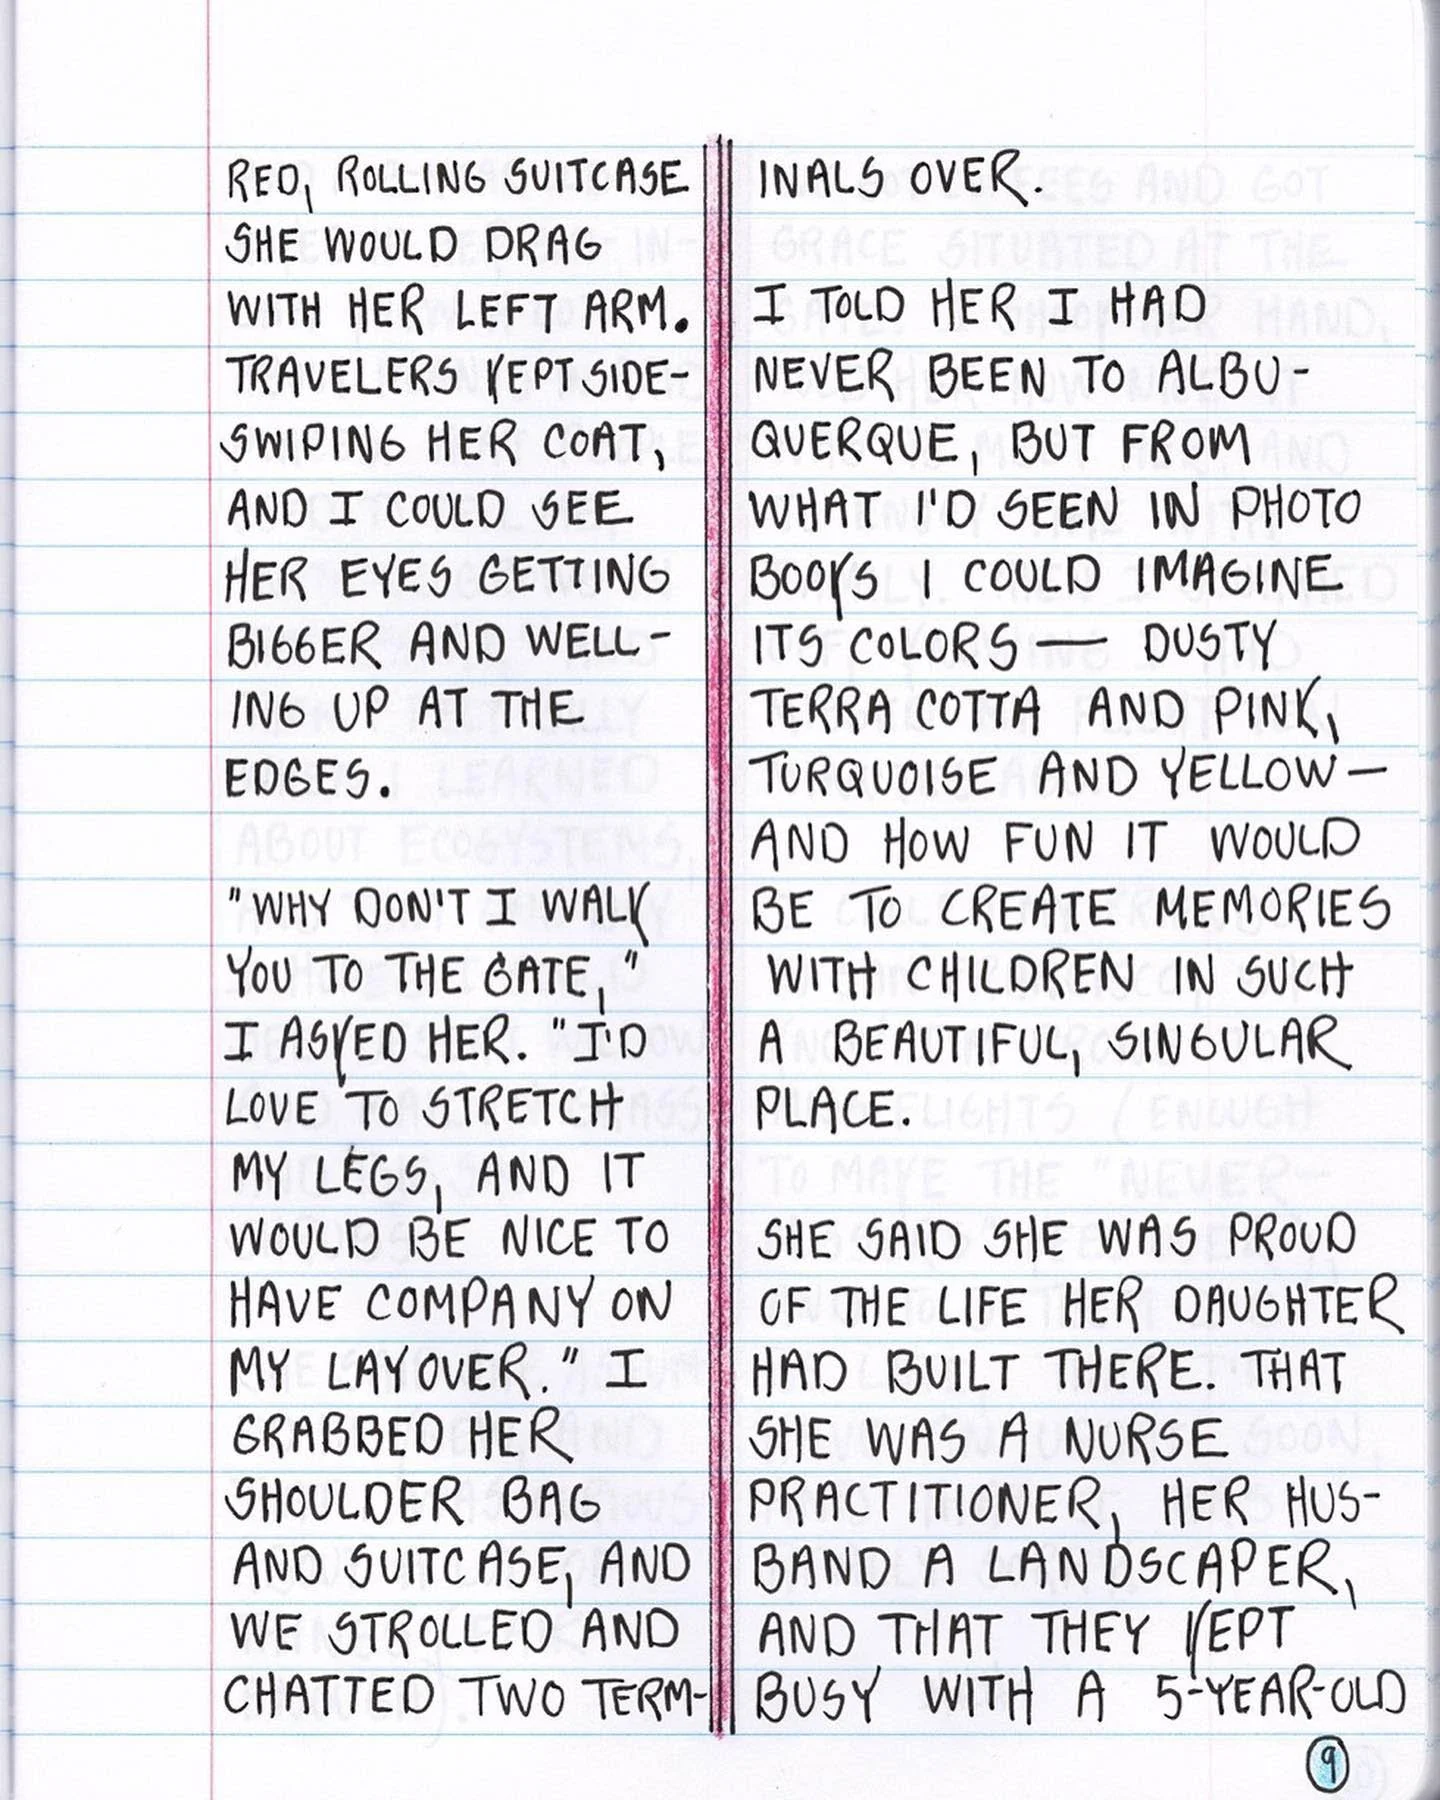 RED, ROLLING SUITCASE
SHE WOULD DRAG
WITH HER LEFT ARM.
TRAVELERS KEPT SIDE-
SWIPING HER COAT,
AND I COULD SEE
HER EYES GETTING
BIGGER AND WELL-
ING UP AT THE
EDGES.
"WHY DON'T I WALK
YOU TO THE GATE,"
I ASKED HER. "I'D
LOVE TO STRETCH
MY LEGS, AND IT
WOULD BE NICE TO
HAVE COMPANY ON
MY LAYOVER." I
GRABBED HER
SHOULDER BAG
AND SUITCASE, AND
WE STROLLED AND
CHATTED TWO TERM-
INALS OVER.
I TOLD HER I HAD
NEVER BEEN TO ALBU-
QUERQUE, BUT FROM
WHAT I'D SEEN IN PHOTO
BOOKS I COULD IMAGINE
ITS COLORS — DUSTY
TERRA COTTA AND PINK,
TURQUOISE AND YELLOW —
AND HOW FUN IT WOULD
BE TO CREATE MEMORIES
WITH CHILDREN IN SUCH
A BEAUTIFUL, SINGULAR
PLACE.
SHE SAID SHE WAS PROUD
OF THE LIFE HER DAUGHTER
HAD BUILT THERE. THAT
SHE WAS A NURSE
PRACTITIONER, HER HUS-
BAND A LANDSCAPER,
AND THAT THEY KEPT
BUSY WITH A 5-YEAR-OLD
9